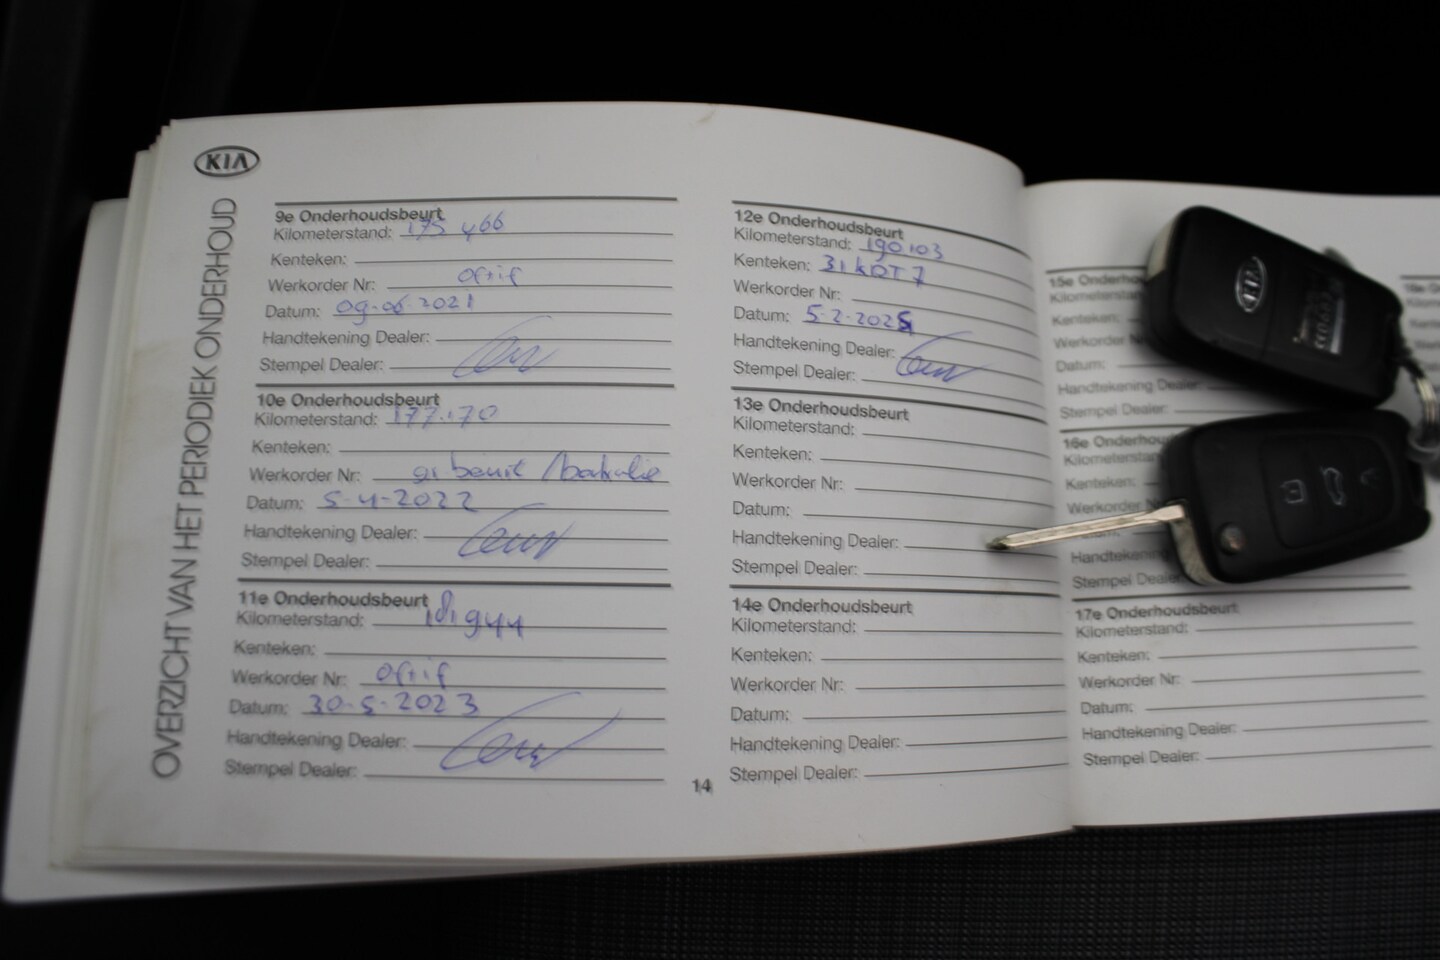 KIA
OVERZICHT VAN HET PERIODIEK ONDERHOUD
9e Onderhoudsbeurt
Kilometerstand: 175 466
Kenteken:
Werkorder Nr:
Datum: 09-06-2021
Handtekening Dealer:
Stempel Dealer:
10e Onderhoudsbeurt
Kilometerstand: 177.170
Kenteken:
Werkorder Nr: gr beurt
Datum: 5-4-2022
Handtekening Dealer:
Stempel Dealer:
11e Onderhoudsbeurt
Kilometerstand: 181944
Kenteken:
Werkorder Nr:
Datum: 30-5-2023
Handtekening Dealer:
Stempel Dealer:
12e Onderhoudsbeurt
Kilometerstand: 190.103
Kenteken: 31 KDT 7
Werkorder Nr:
Datum: 5-2-2025
Handtekening Dealer:
Stempel Dealer:
13e Onderhoudsbeurt
Kilometerstand:
Kenteken:
Werkorder Nr:
Datum:
Handtekening Dealer:
Stempel Dealer:
14e Onderhoudsbeurt
Kilometerstand:
Kenteken:
Werkorder Nr:
Datum:
Handtekening Dealer:
Stempel Dealer:
14
15e
Kenteken:
Datum:
Handtekening Dealer:
Stempel Dealer:
16e
Kenteken:
Werkorder
Handtekening
Stempel Dealer:
17e Onderhoudsbeurt
Kilometerstand:
Kenteken:
Werkorder Nr:
Datum:
Handtekening Dealer:
Stempel Dealer:
KIA